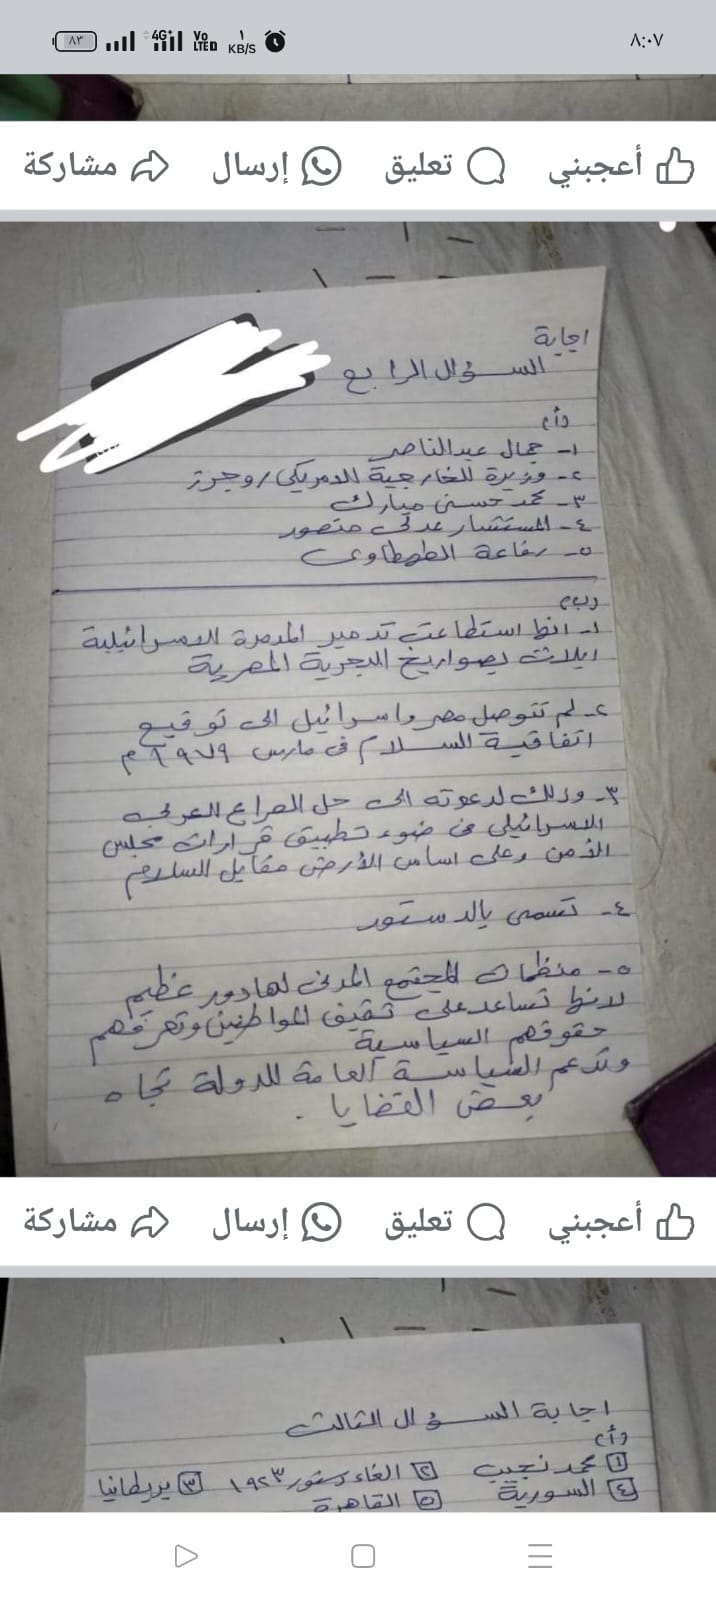 ٨٣ 4G+ Vo LTE ١ KB/S ٨:٠٧
أعجبني تعليق إرسال مشاركة
اجابة
السؤال الرابع
(أ)
١- جمال عبدالناصر
٢- وزيرة الخارجية الامريكي / وجرز
٣- محمد حسنى مبارك
٤- المستشار عدلى منصور
٥- رفاعة الطهطاوى
(ب)
١- انها استطاعت تدمير المدمرة الاسرائيلية
ايلات بصواريخ البحرية المصرية
٢- لم تتوصل مصر واسرائيل الى توقيع
اتفاقية السلام فى مارس ١٩٧٩ م
٣- وذلك لدعوته الى حل الصراع العربى
الاسرائيلى فى ضوء تطبيق قرارات مجلس
الأمن وعلى اساس الأرض مقابل السلام
٤- تسمى بالدستور
٥- منظمات المجتمع المدنى لها دور عظيم
لانها تساعد على تثقيف المواطنين وتعرفهم
حقوقهم السياسية
وتدعم السياسة العامة للدولة تجاه
بعض القضايا .
أعجبني تعليق إرسال مشاركة
اجابة السؤال الثالث
(أ)
١ محمد نجيب ٢ الغاء دستور ١٩٢٣ ٣ بريطانيا
٤ السورية ٥ القاهرة